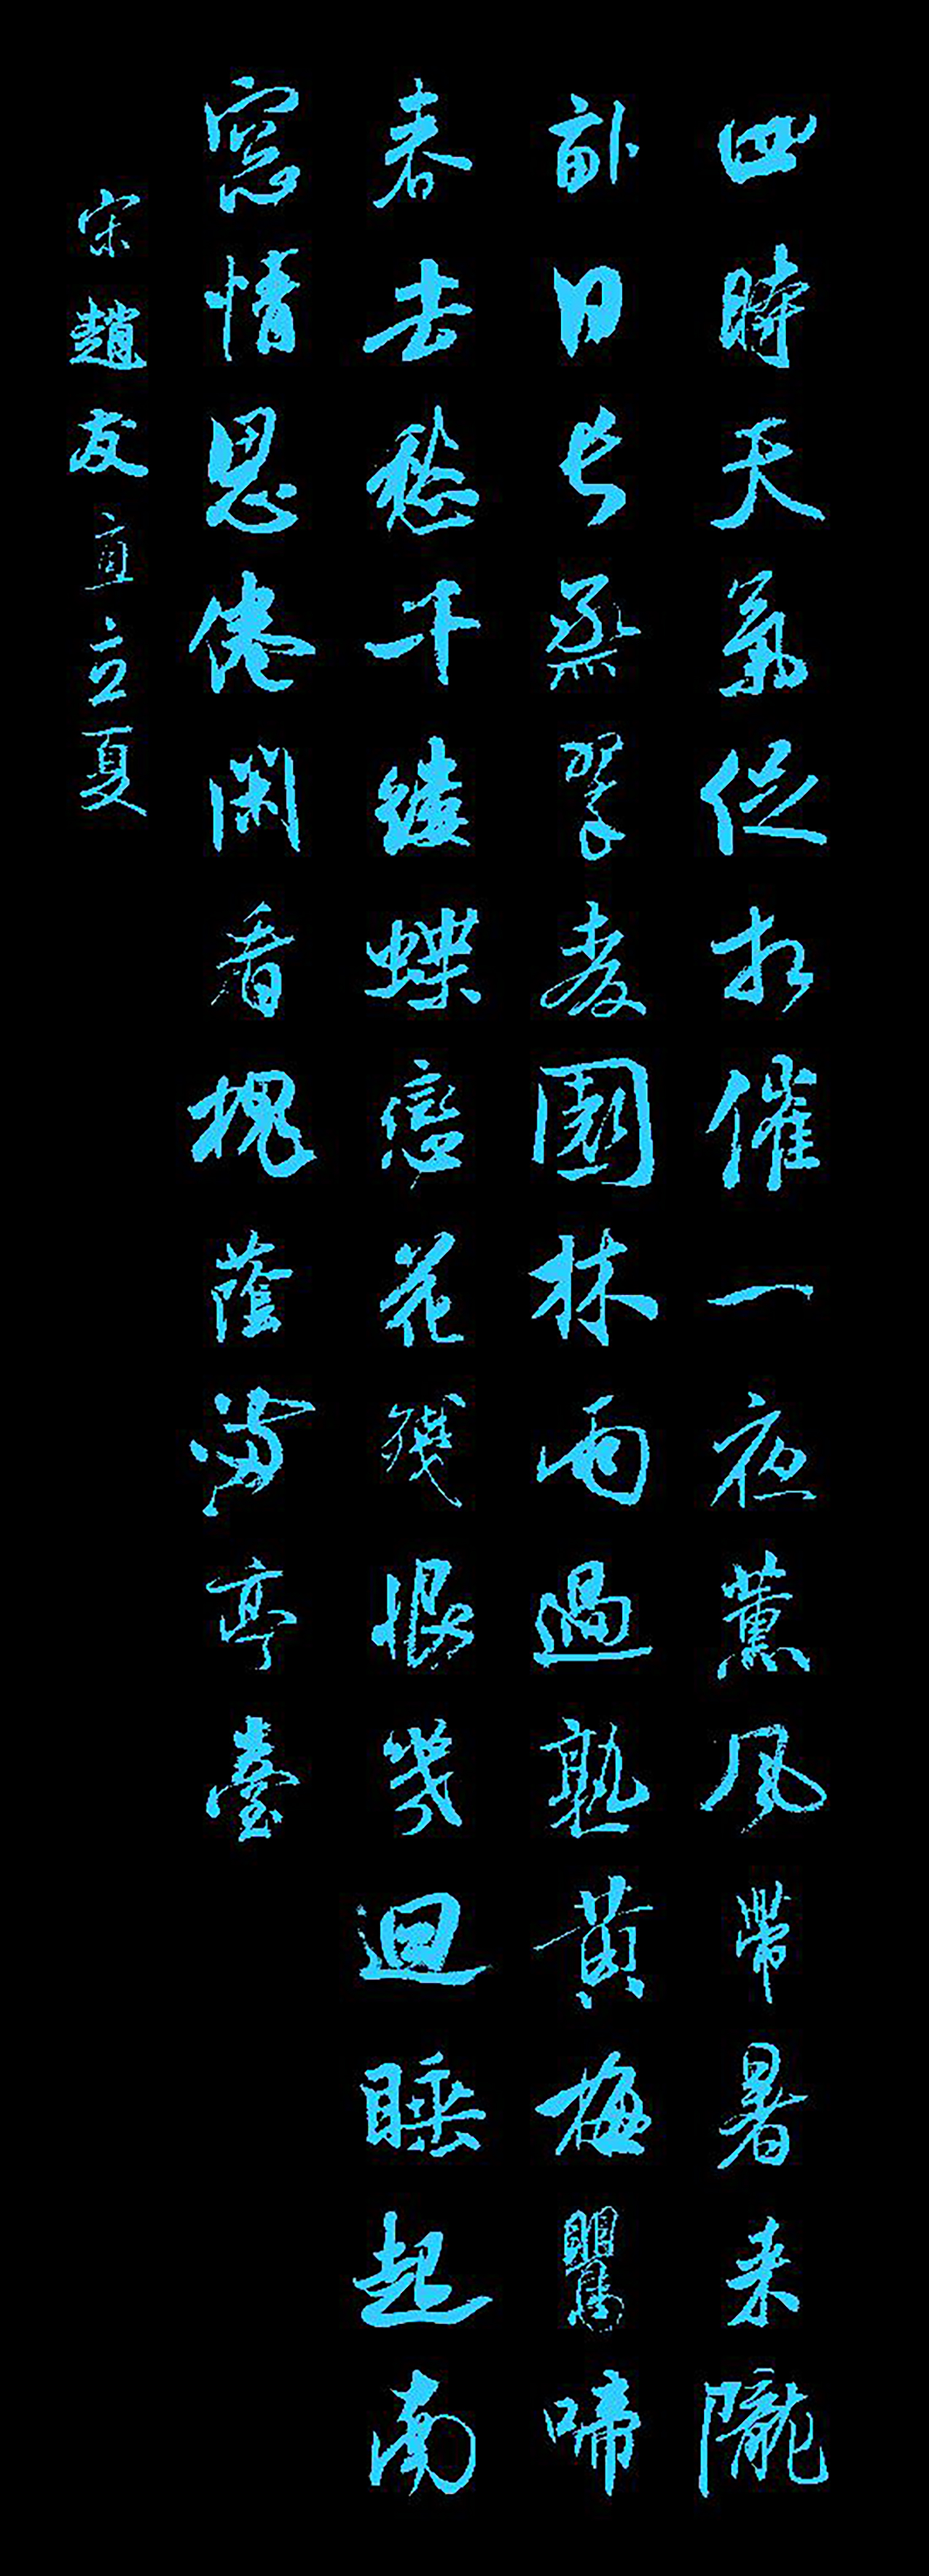 四時天氣促相催一夜薰風帶暑来隴
畝日長蒸翠麥園林雨過熟黄梅鸎啼
春去愁千縷蝶戀花殘恨幾迴睡起南
窓情思倦閑看槐蔭滿亭臺
宋趙友直立夏